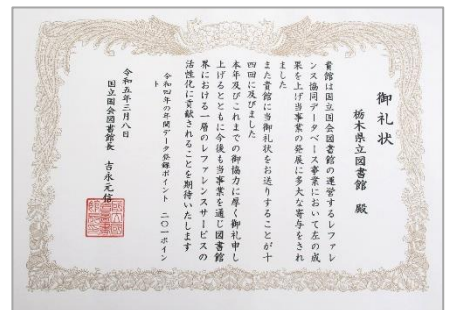 御礼状
栃木県立図書館 殿
貴館は国立国会図書館の運営するレファレ
ンス協同データベース事業において左の成
果を上げ当事業の発展に多大な寄与をされ
ました
また貴館に当御礼状をお送りすることが十
四回に及びました
本年及びこれまでの御協力に厚く御礼申し
上げるとともに今後も当事業を通じ図書館
界における一層のレファレンスサービスの
活性化に貢献されることを期待いたします
令和四年の年間データ登録ポイント 二〇一ポイン
ト
令和五年三月八日
国立国会図書館長 吉永元信